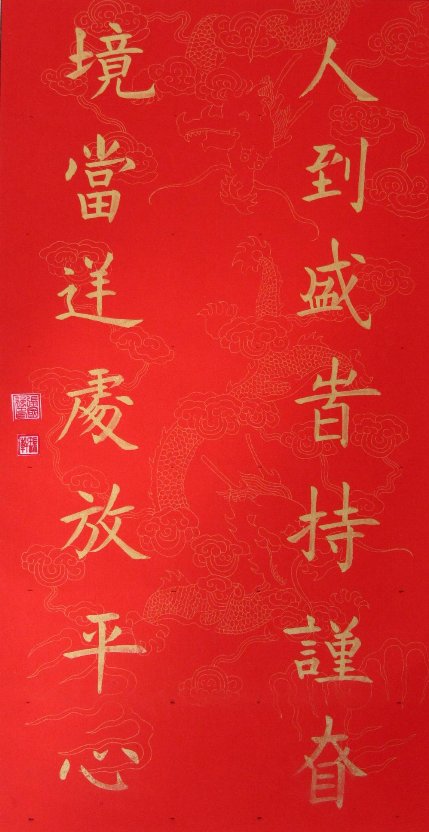 人到盛旹持謹眘
境當逆處放平心